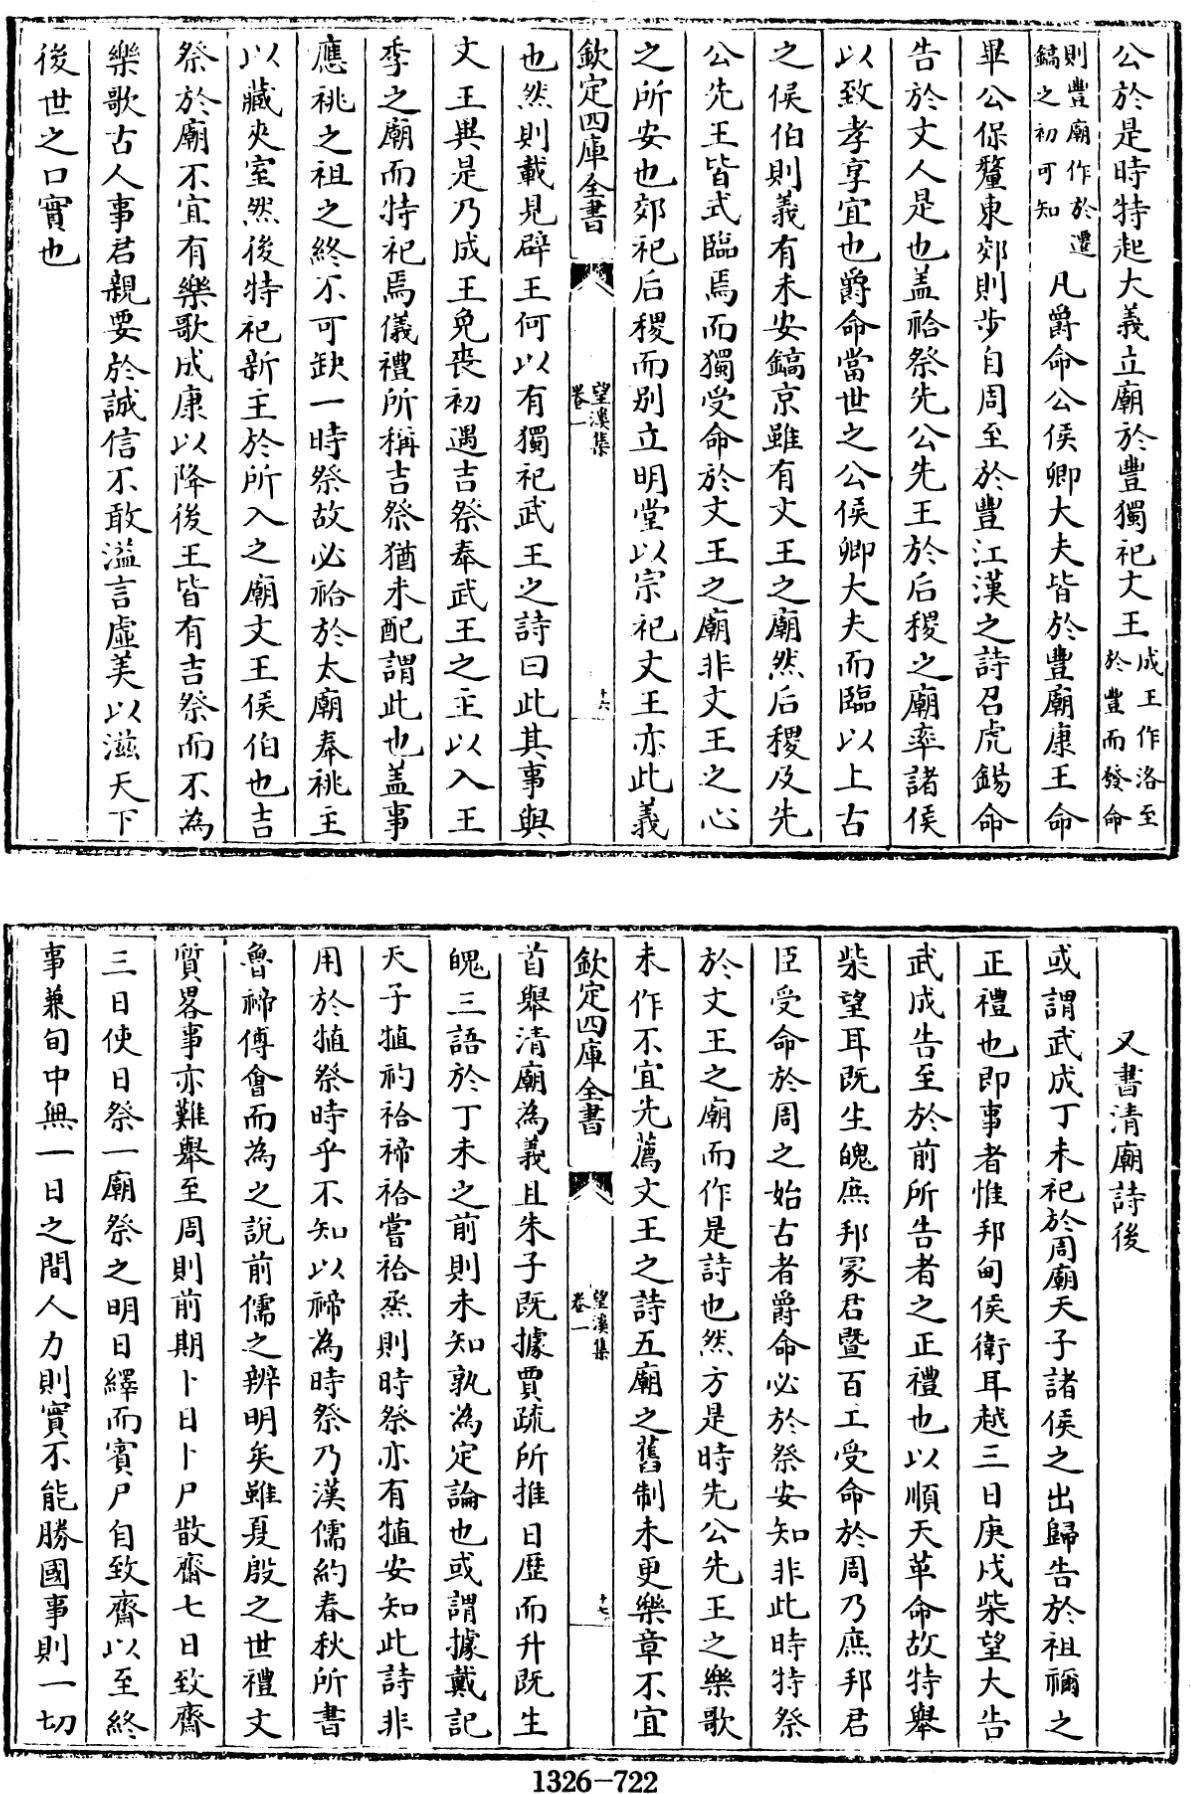 公於是時特起大義立廟於豐獨祀文王成王作洛至
於豐而發命
則豐廟作於遷
鎬之初可知凡爵命公侯卿大夫皆於豐廟康王命
畢公保釐東郊則步自周至於豐江漢之詩召虎錫命
告於文人是也蓋祫祭先公先王於后稷之廟率諸侯
以致孝享宜也爵命當世之公侯卿大夫而臨以上古
之侯伯則義有未安鎬京雖有文王之廟然后稷及先
公先王皆式臨焉而獨受命於文王之廟非文王之心
之所安也郊祀后稷而別立明堂以宗祀文王亦此義
欽定四庫全書
望溪集
卷一
十六
也然則載見辟王何以有獨祀武王之詩曰此其事與
文王異是乃成王免喪初遇吉祭奉武王之主以入王
季之廟而特祀焉儀禮所稱吉祭猶未配謂此也蓋事
應祧之祖之終不可缺一時祭故必祫於太廟奉祧主
以藏夾室然後特祀新主於所入之廟文王侯伯也吉
祭於廟不宜有樂歌成康以降後王皆有吉祭而不為
樂歌古人事君親要於誠信不敢溢言虛美以滋天下
後世之口實也
又書清廟詩後
或謂武成丁未祀於周廟天子諸侯之出歸告於祖禰之
正禮也即事者惟邦甸侯衛耳越三日庚戌柴望大告
武成告至於前所告者之正禮也以順天革命故特舉
柴望耳既生魄庶邦冢君暨百工受命於周乃庶邦君
臣受命於周之始古者爵命必於祭安知非此時特祭
於文王之廟而作是詩也然方是時先公先王之樂歌
未作不宜先薦文王之詩五廟之舊制未更樂章不宜
欽定四庫全書
望溪集
卷一
十七
首舉清廟為義且朱子既據賈疏所推日歷而升既生
魄三語於丁未之前則未知孰為定論也或謂據戴記
天子犆礿祫禘祫嘗祫烝則時祭亦有犆安知此詩非
用於犆祭時乎不知以禘為時祭乃漢儒約春秋所書
魯禘傅會而為之說前儒之辨明矣雖夏殷之世禮文
質畧事亦難舉至周則前期卜日卜尸散齋七日致齋
三日使日祭一廟祭之明日繹而賓尸自致齋以至終
事兼旬中無一日之間人力則實不能勝國事則一切
1326-722